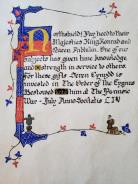 Forthwith! Pay heed to their
Majesties King Konrad and
Queen. One of our
Subjects has given him knowledge
and strength in service to others
For these gifts Seren Cynydd is
invested in the Order of the Cygnus
Bestowed at The Pennsic
War - July Anno Societatis LIV